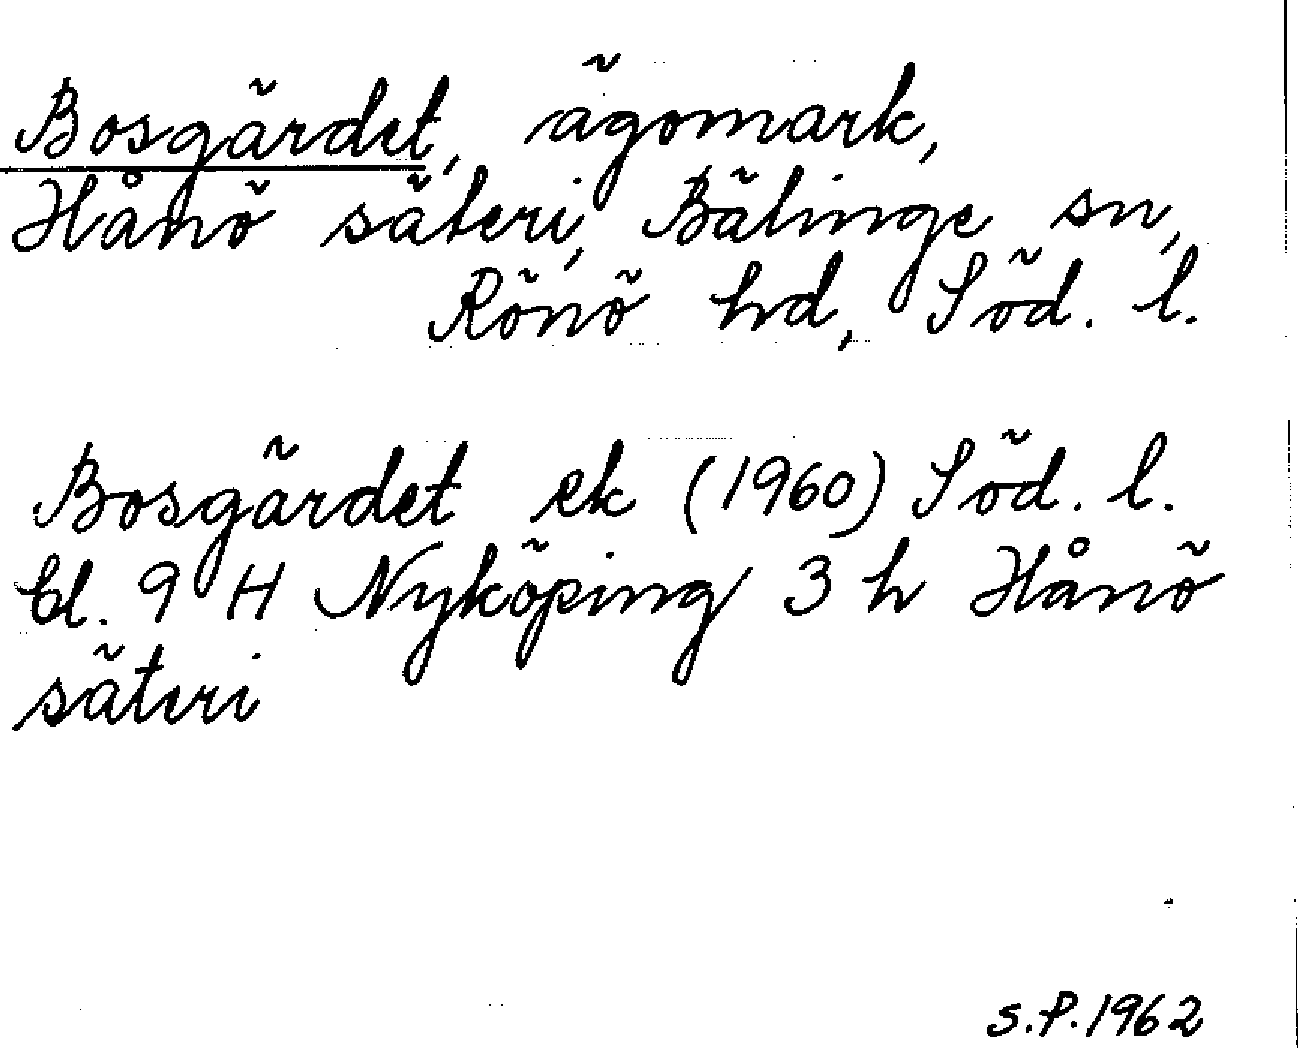 Bosgärdet, ägomark,
Hånö säteri, Bälinge sn,
Rönö hd, Söd. l.
Bosgärdet ek (1960) Söd. l.
bl. 9 H Nyköping 3 h Hånö
säteri
S.P. 1962